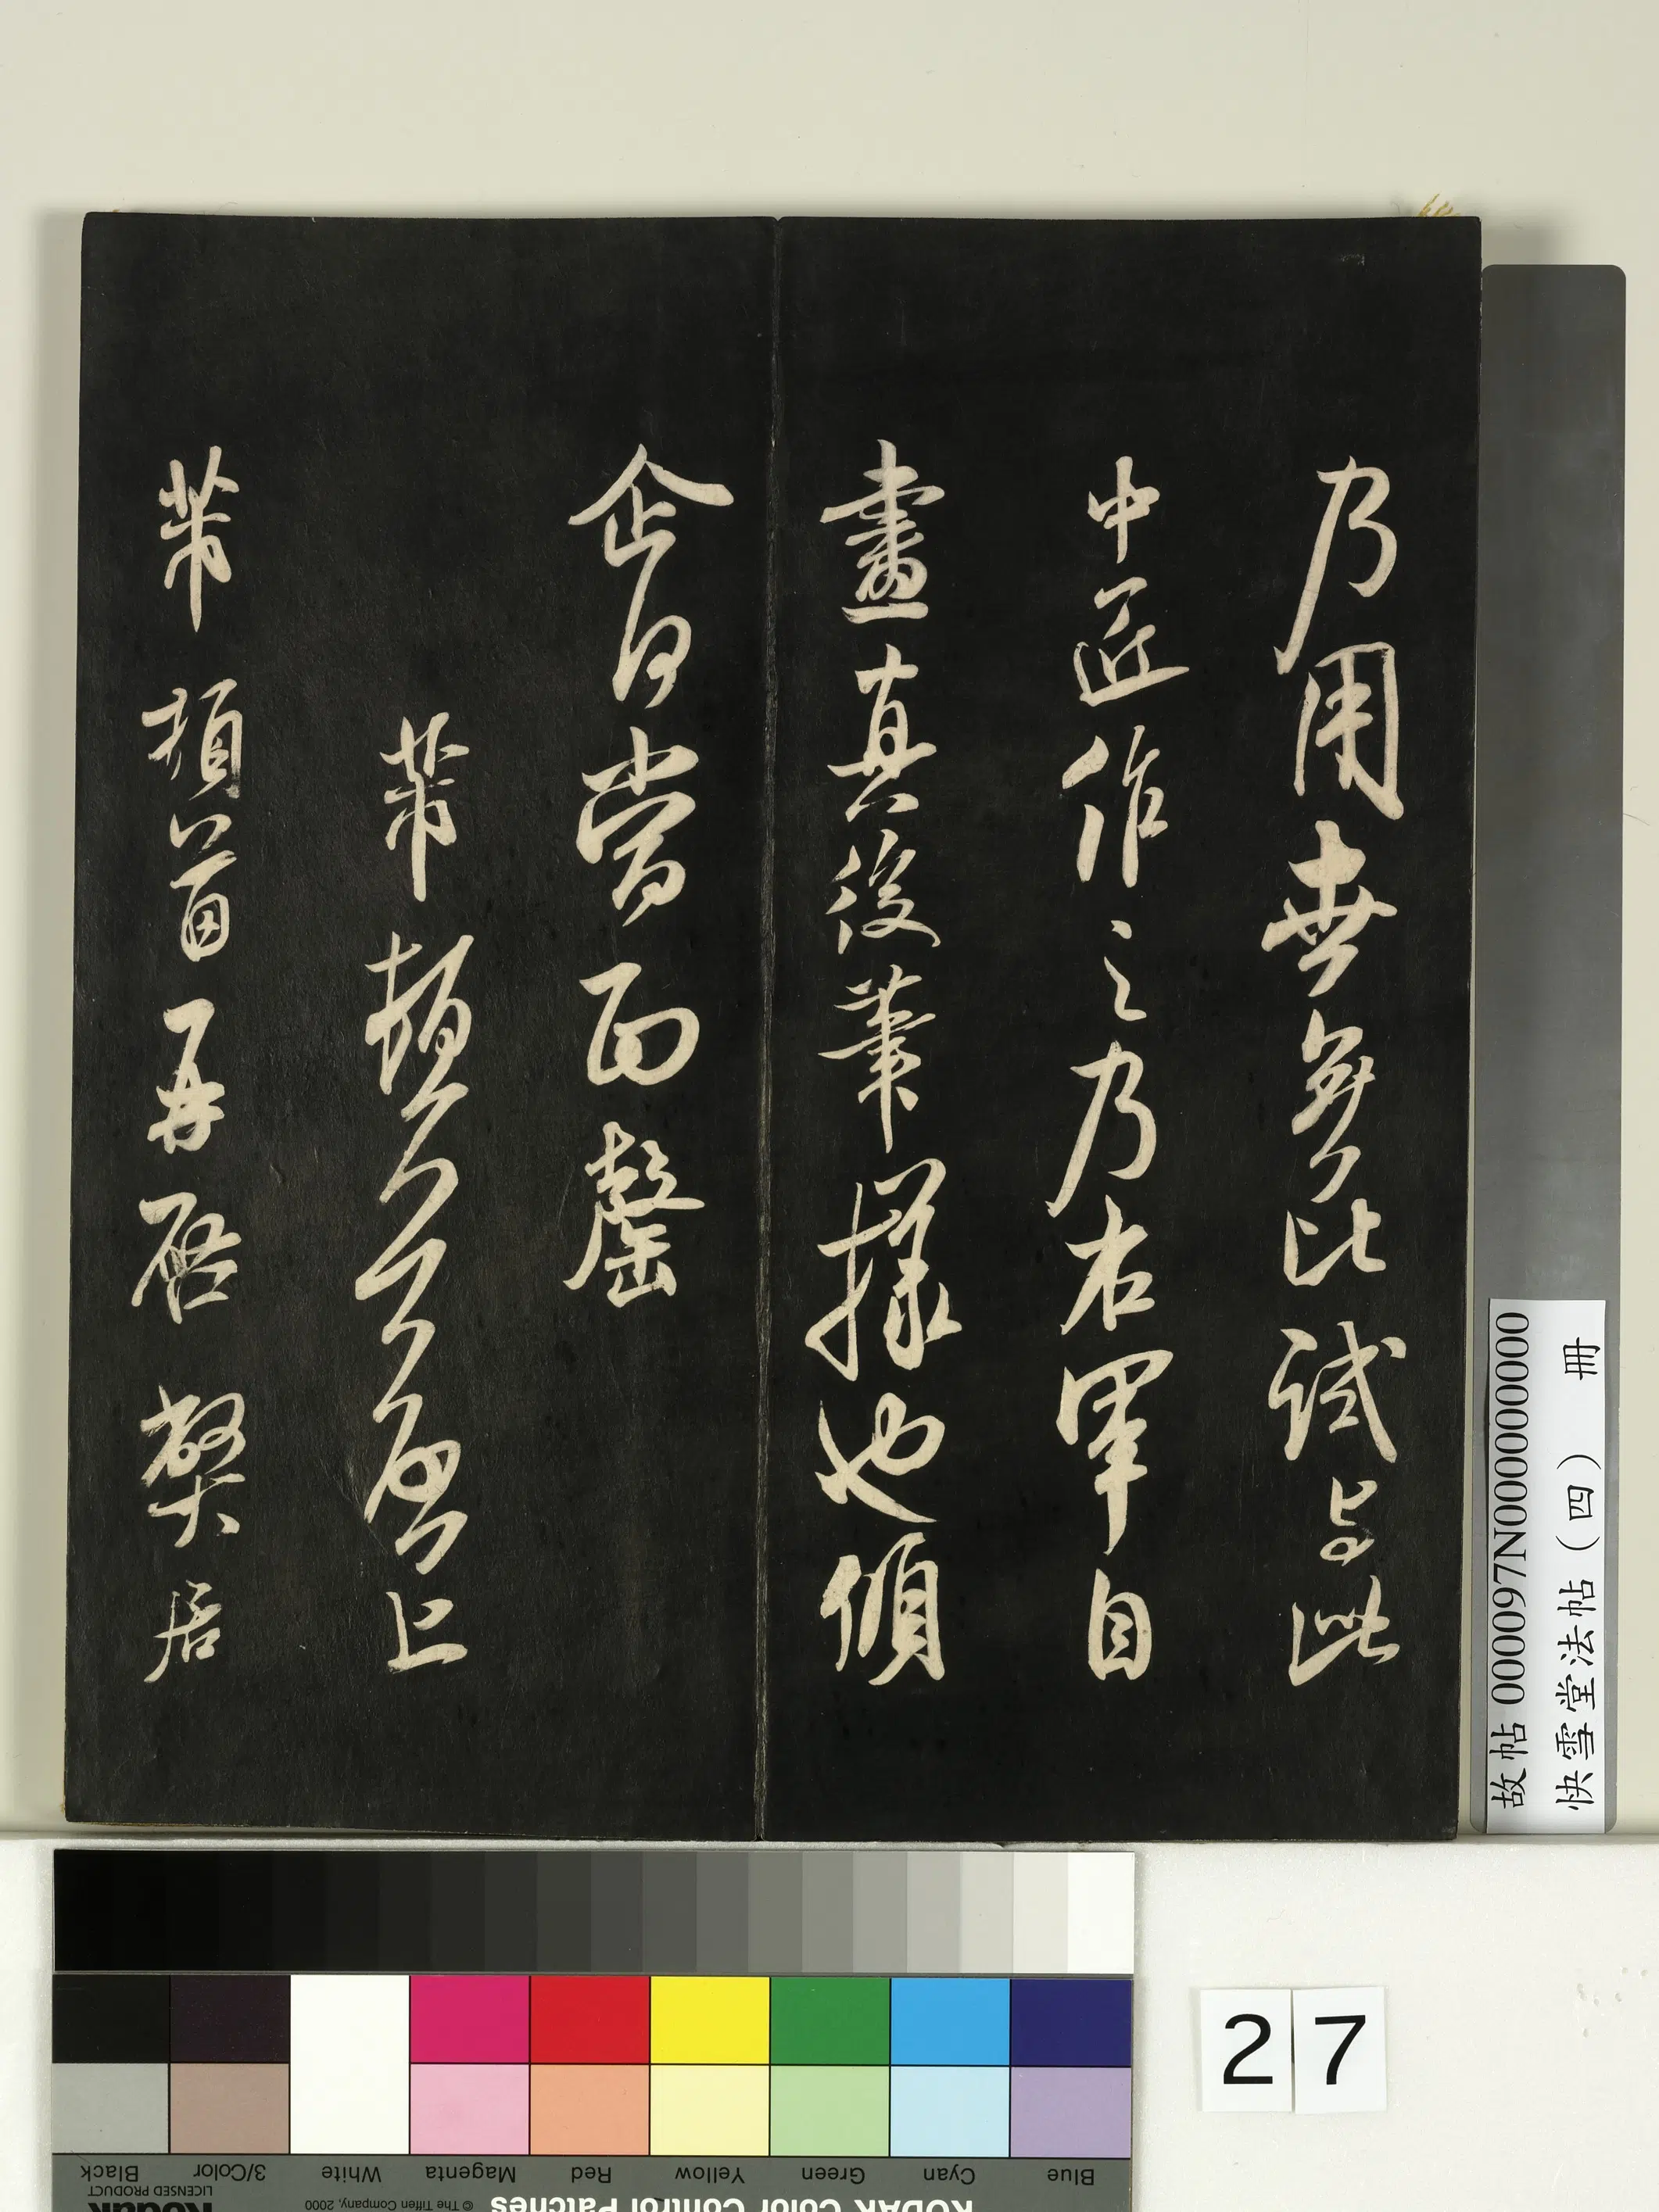 乃用世無比試与此
中匠作之乃右軍自
畫真後筆樣也傾
企自當面罄
芾頓首啓上
芾頓首再啓獘居
故帖 000097N000000000
快雪堂法帖（四） 冊
27
Blue
Cyan
Green
Yellow
Red
Magenta
White
3/Color
Black
KODAK Color Control Patches
© The Tiffen Company, 2000
Kodak
LICENSED PRODUCT